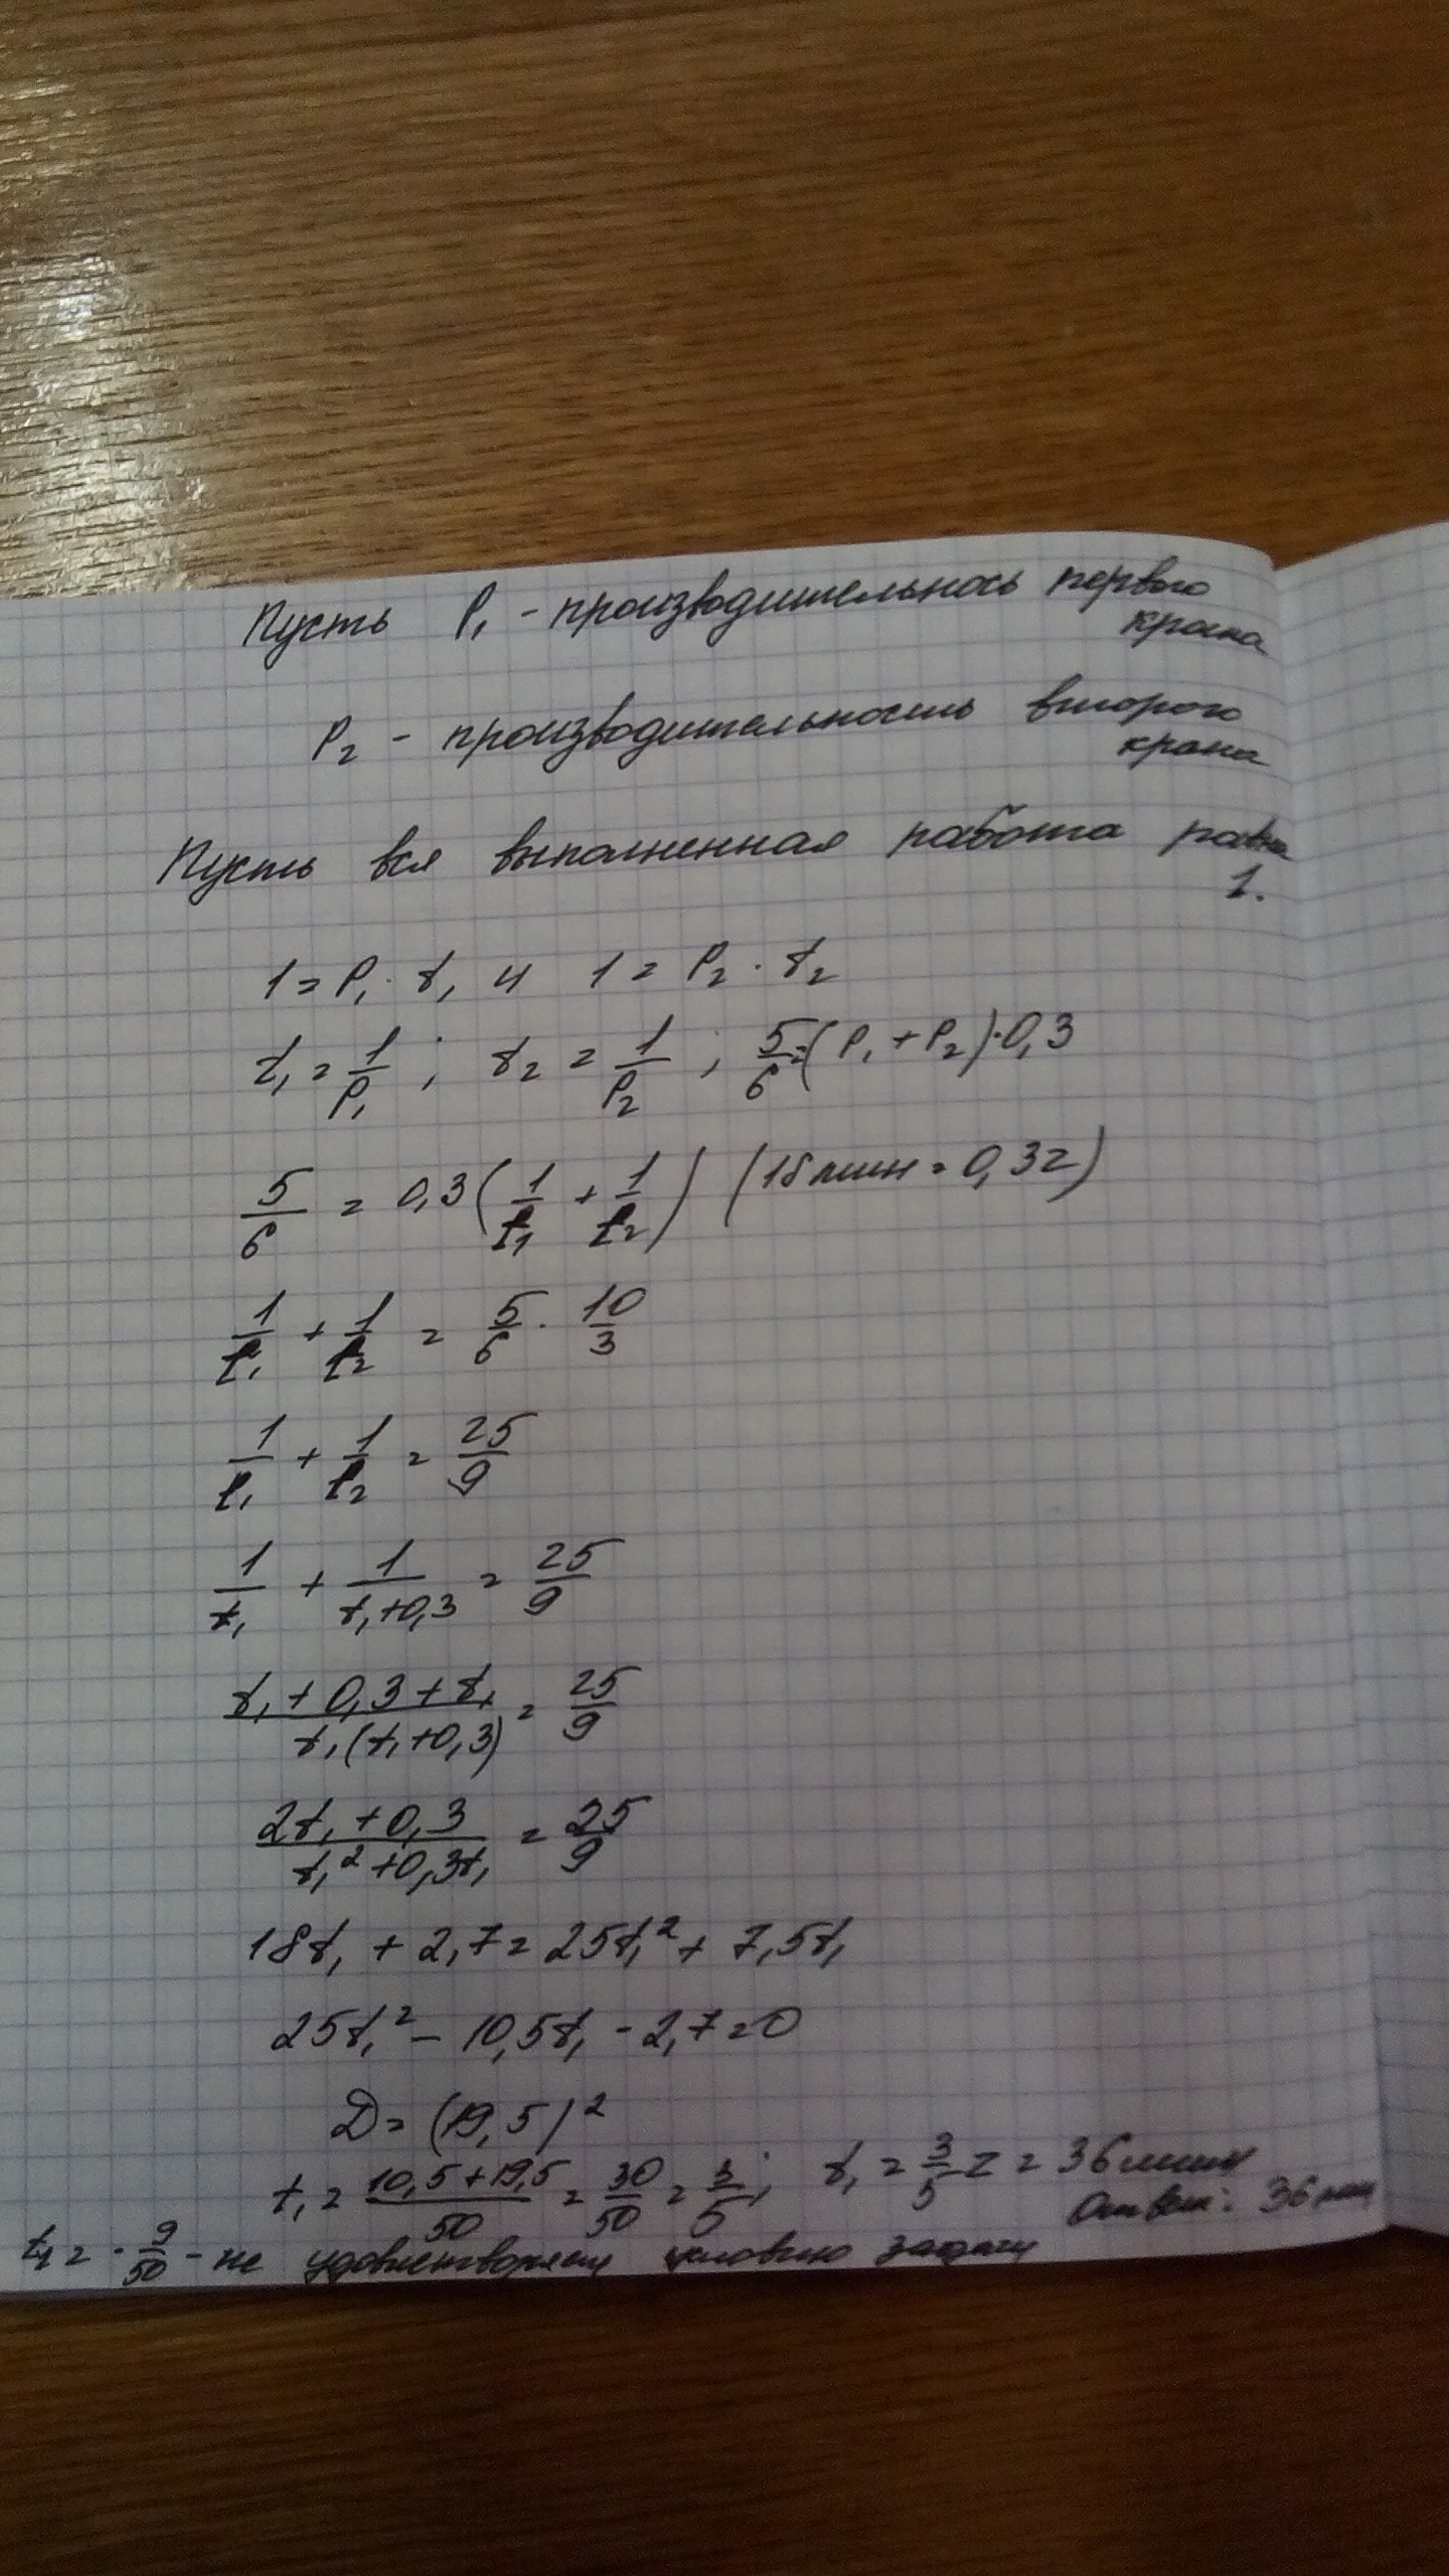 Пусть P₁ - производительнось первого
крана
P₂ - производительность второго
крана
Пусть вся выполненная работа равна
1.
1 = P₁ · t₁ и 1 = P₂ · t₂
t₁ = 1/P₁ ; t₂ = 1/P₂ ; 5/6 = (P₁ + P₂) · 0,3
5/6 = 0,3 (1/t₁ + 1/t₂) (18 мин = 0,3 г)
1/t₁ + 1/t₂ = 5/6 · 10/3
1/t₁ + 1/t₂ = 25/9
1/t₁ + 1/(t₁+0,3) = 25/9
(t₁ + 0,3 + t₁)/(t₁(t₁+0,3)) = 25/9
(2t₁ + 0,3)/(t₁² + 0,3t₁) = 25/9
18t₁ + 2,7 = 25t₁² + 7,5t₁
25t₁² - 10,5t₁ - 2,7 = 0
D = (19,5)²
t₁ = (10,5 + 19,5)/50 = 30/50 = 3/5 ; t₁ = 3/5 г = 36 мин
Ответ: 36 мин
t₁ = - 9/50 - не удовлетворяет условию задачи